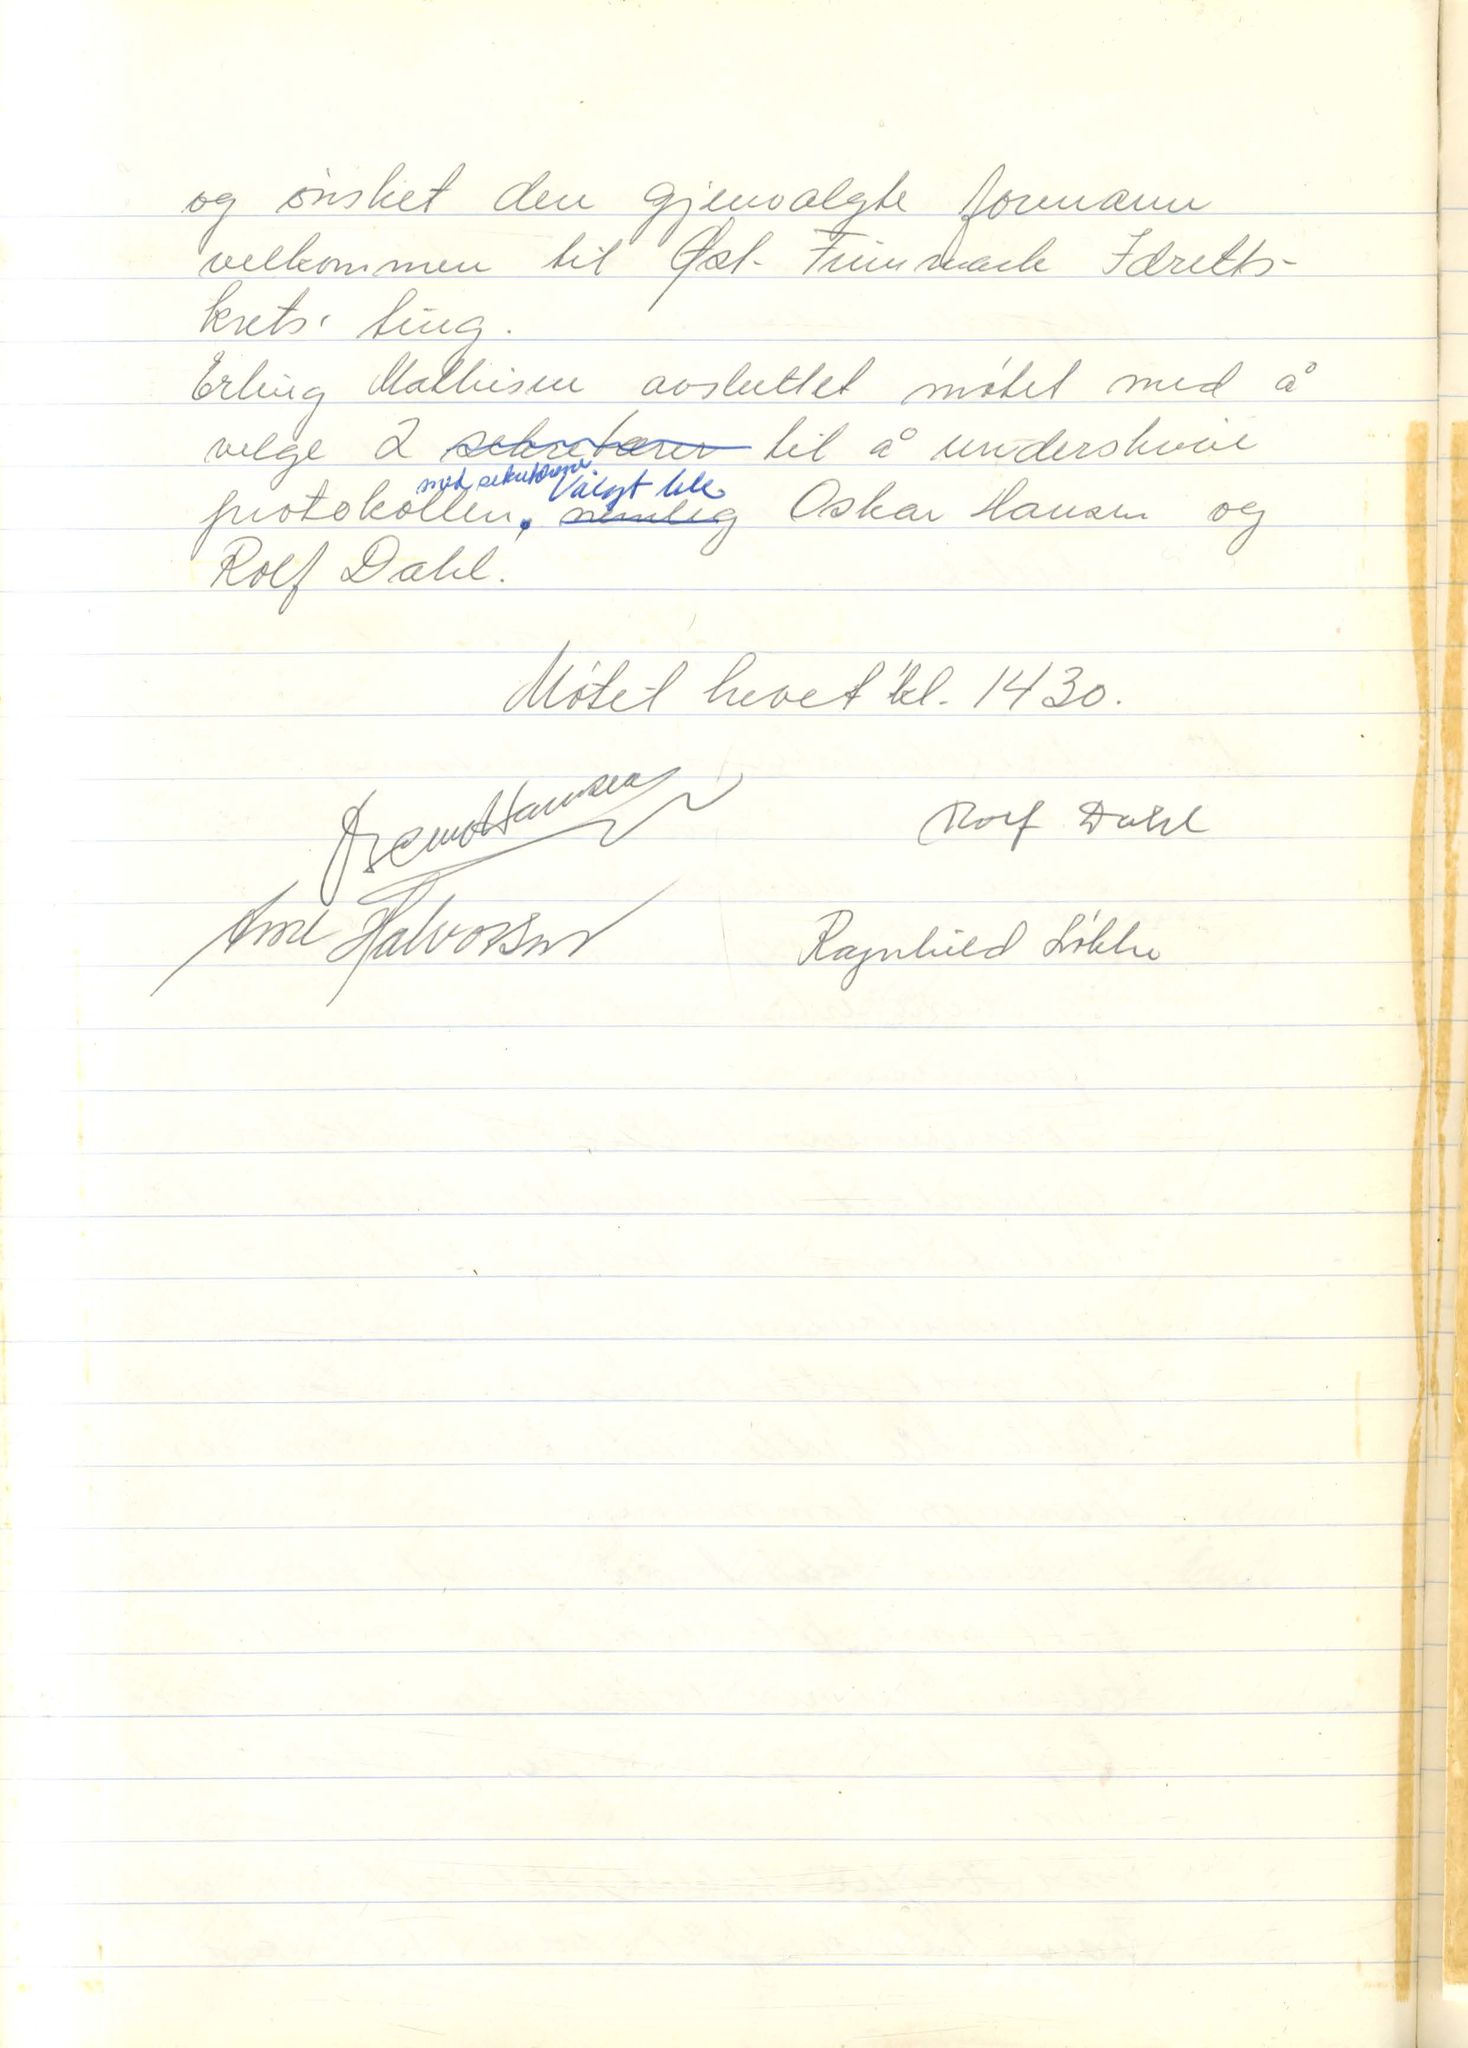 og ønsket den gjenvalgte formann
velkommen til Øst-Finnmark Idretts-
krets' ting.
Erling Mathisen avsluttet møtet med å
velge 2 sekretærer til å underskrive
med sekretærene Valgt ble
protokollen, nemlig Oskar Hansen og
Rolf Dahl.
Møtet hevet kl. 1430.
Hansen
Rolf Dahl
Halvorsen
Ragnhild Løkke